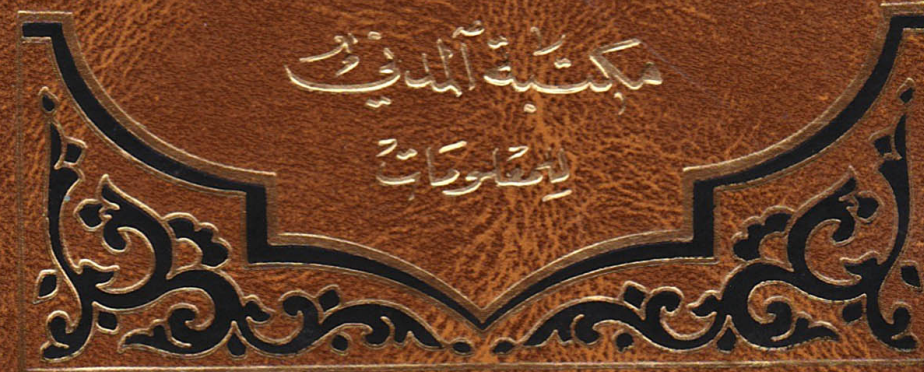 مكتبة المدني
للمعلومات